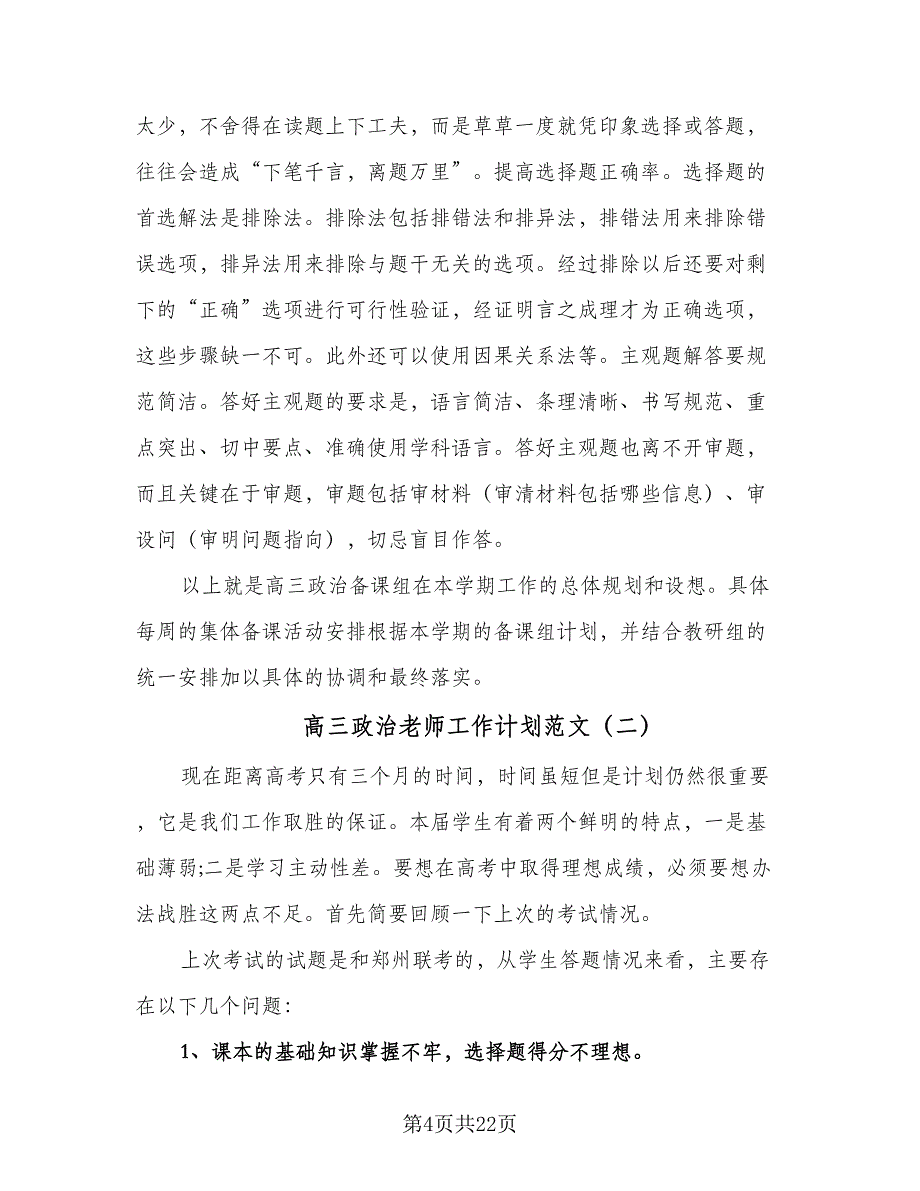 太少，不舍得在读题上下工夫，而是草草一度就凭印象选择或答题，
往往会造成“下笔千言，离题万里”。提高选择题正确率。选择题的
首选解法是排除法。排除法包括排错法和排异法，排错法用来排除错
误选项，排异法用来排除与题干无关的选项。经过排除以后还要对剩
下的“正确”选项进行可行性验证，经证明言之成理才为正确选项，
这些步骤缺一不可。此外还可以使用因果关系法等。主观题解答要规
范简洁。答好主观题的要求是，语言简洁、条理清晰、书写规范、重
点突出、切中要点、准确使用学科语言。答好主观题也离不开审题，
而且关键在于审题，审题包括审材料（审清材料包括哪些信息）、审
设问（审明问题指向），切忌盲目作答。
以上就是高三政治备课组在本学期工作的总体规划和设想。具体
每周的集体备课活动安排根据本学期的备课组计划，并结合教研组的
统一安排加以具体的协调和最终落实。
高三政治老师工作计划范文（二）
现在距离高考只有三个月的时间，时间虽短但是计划仍然很重要
，它是我们工作取胜的保证。本届学生有着两个鲜明的特点，一是基
础薄弱;二是学习主动性差。要想在高考中取得理想成绩，必须要想办
法战胜这两点不足。首先简要回顾一下上次的考试情况。
上次考试的试题是和郑州联考的，从学生答题情况来看，主要存
在以下几个问题：
1、课本的基础知识掌握不牢，选择题得分不理想。
第4页共22页